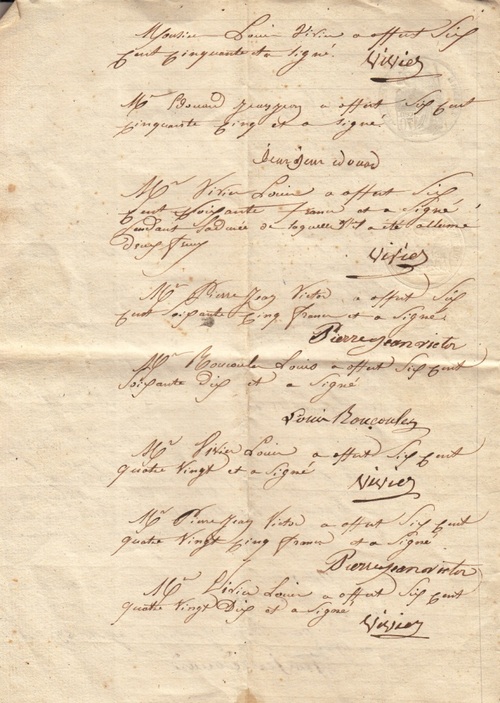 Monsieur Louis Vivier a offert Six
Cent Cinquante et a signé.
Vivier
Mr Edouard Jeanjean a offert Six Cent
Cinquante Cinq et a signé.
Jeanjean edouard
Mr Vivier Louis a offert Six
Cent Soixante francs et a Signé
pendant la durée de laquelle il a été allumé
deux feux
Vivier
Mr Pierre Jean Victor a offert Six
Cent soixante Cinq francs et a Signé
Pierre jean victor
Mr Roucoule Louis a offert Six Cent
Soixante Dix et a Signé
Louis Roucoule
Mr Vivier Louis a offert Six Cent
quatre Vingt et a Signé
Vivier
Mr Pierre Jean Victor a offert Six Cent
quatre Vingt Cinq francs et a Signé
Pierre jean victor
Mr Vivier Louis a offert Six Cent
quatre Vingt Dix et a Signé
Vivier